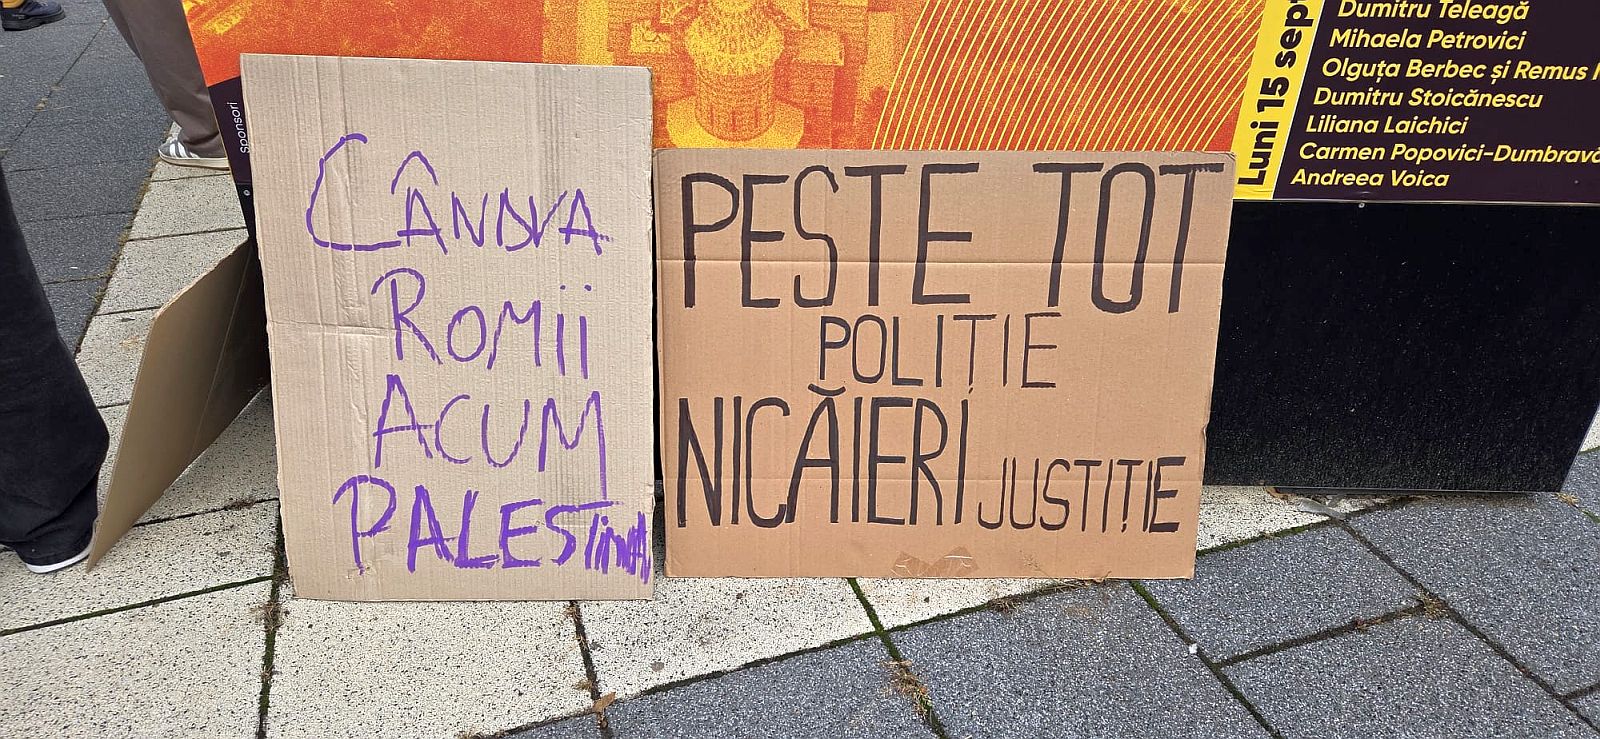 sponsori
CÂNDVA
ROMII
ACUM
PALESTINA
PESTE TOT
POLIȚIE
NICĂIERI JUSTIȚIE
Luni 15 sept
Dumitru Teleagă
Mihaela Petrovici
Olguța Berbec și Remus
Dumitru Stoicănescu
Liliana Laichici
Carmen Popovici-Dumbravă
Andreea Voica